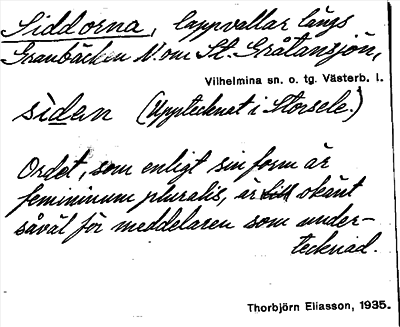 Siddorna, lappvallar längs
Granbäcken N. om St. Gråtansjön,
Vilhelmina sn. o. tg. Västerb. l.
sìdan (Upptecknat i Storsele.)
Ordet, som enligt sin form är
femininum pluralis, är okänt
såväl för meddelaren som under-
tecknad.
Thorbjörn Eliasson, 1935.